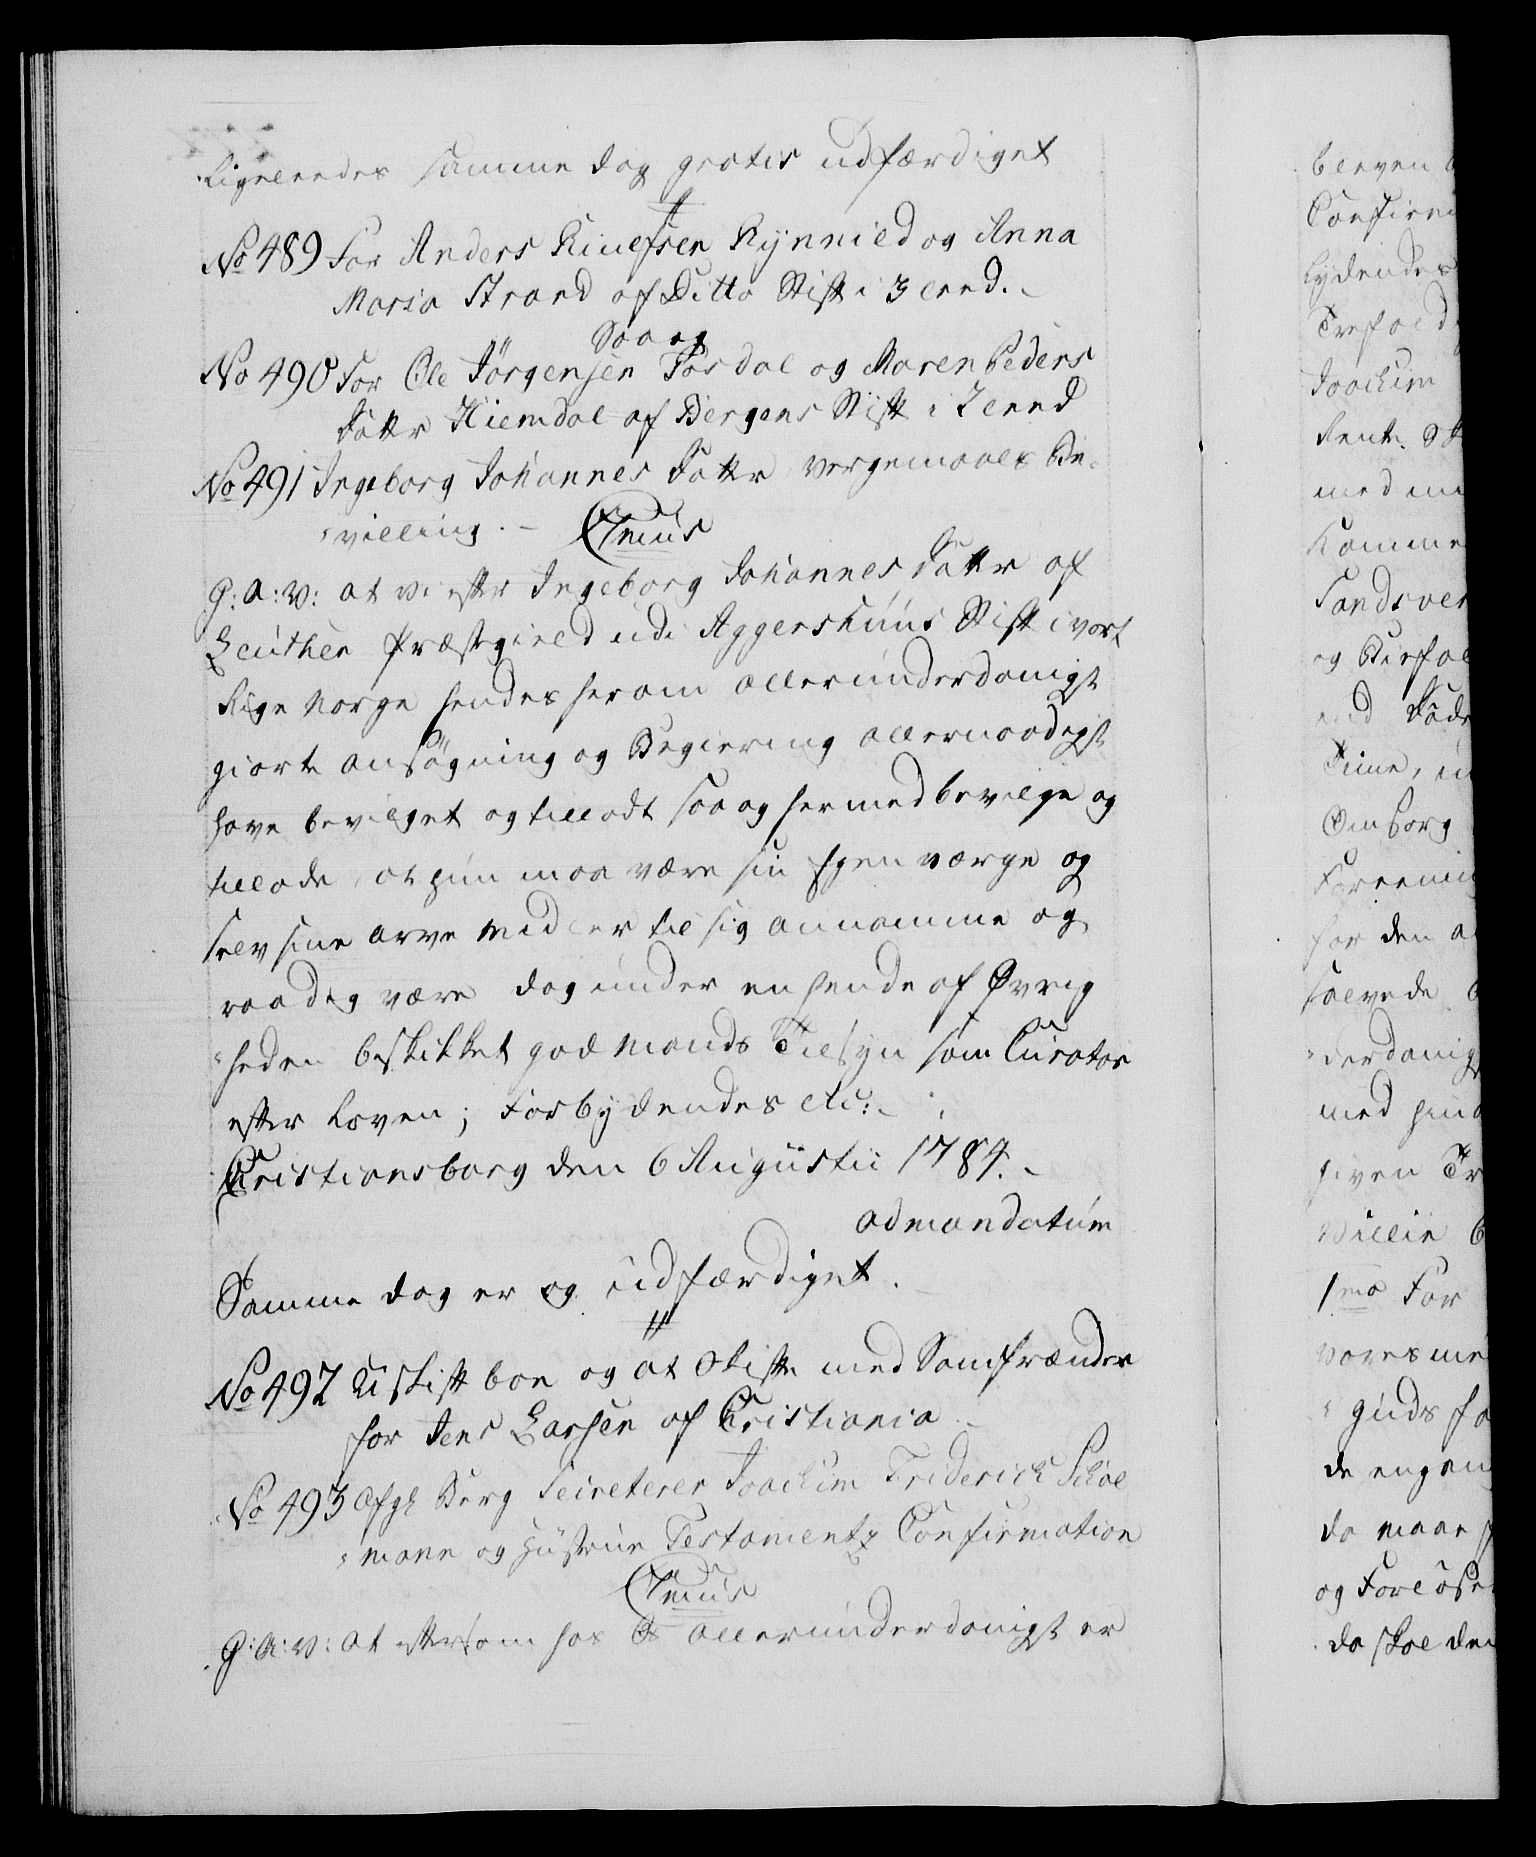 Ligeleedes samme dag gratis udfærdiget
No 489 For Anders Knudsen Rynnild og Anna
Maria Strand af Ditto Stift i 3 leed.
Saa og
No 490 For Ole Jörgensen Fosdal og Maren Peders
Datter Hiemdal af Bergens Stift i 2 leed
No 491 Ingeborg Johannes Datter vergemaals Be-
villing.
C 7mus
G: A: V: at vi efter Ingeborg Johannes Datter af
Leuthen Præstegield udi Aggershuus Stift i vort
Rige Norge hendes herom allerunderdanigst
giorte ansögning og Begiering allernaadigst
have bevilget og tilladt saa og hermed bevilge og
tillade, at hun maa være sin Egen værge og
selv sine arve Midler til sig annamme og
raadig være dog under en hende af Øvrig
heden beskikket god Mands Tilsyn som Curator
efter Loven; Forbydendes etc:
Christiansborg den 6 Augustii 1784.
ad mandatum
Samme dag er og udfærdiget.
No 492 Uskift boe og at skifte med Samfrænder
for Jens Larsen af Christiania
No 493 Afgl. Berg Secreterer Joachim Friderich
mann og Hustrue Testamentz Confirmation
C 7mus
G: A: V: at eftersom hos Os allerunderdanigst er
bleven
Lydendes
Joachim
med
Komme
Sandsver
og
for den
med
1mo For
vores
Guds
de engang
da maae
og Forløse
da skal den